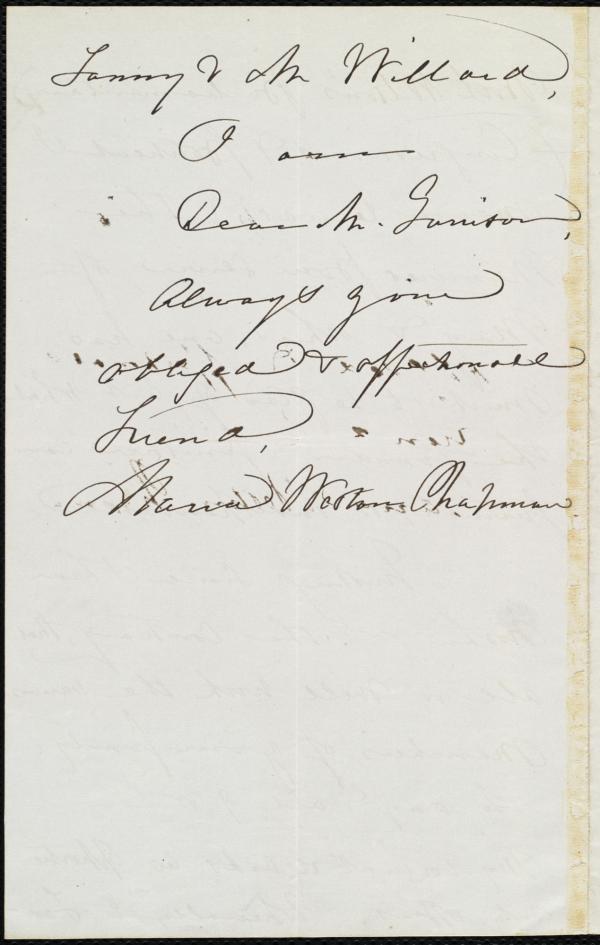 Fanny & Mr Willard,
I am
Dear Mr. Garrison,
Always your
obliged & affectionate
Friend,
Maria Weston Chapman.